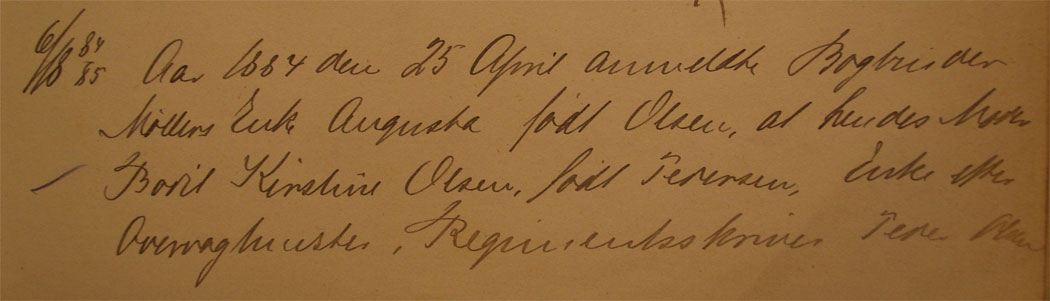 6/18 84/85 Aar 1884 den 25 April anmeldte Bogbinder
Møllers Enke Augusta født Olsen, at hendes Moder
Bodil Kirstine Olsen, født Pedersen, Enke efter
Overvagtmester, Regimentsskriver Peder Olsen